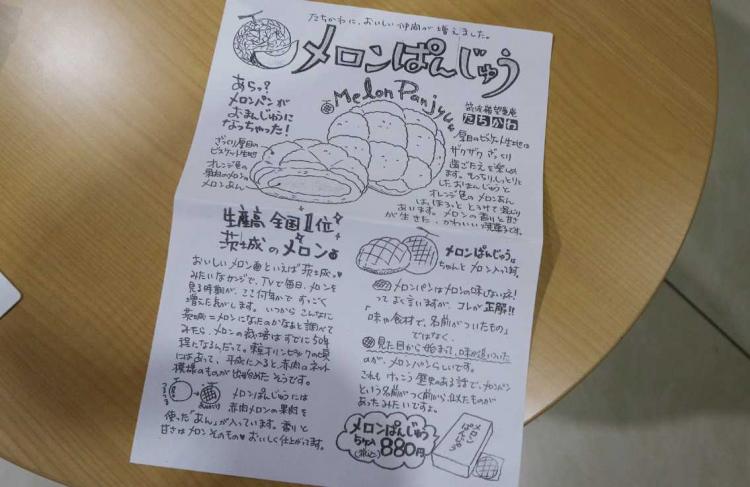 たちかわに、おいしい仲間が増えました。
メロンぱんじゅう
Melon Panjyu
あらっ？
メロンパンが
おまんじゅうに
なっちゃった！
ざっくり厚目の
ビスケット生地
オレンジ色の
果肉のメロンの
メロンあん
筑波
たちかわ
厚目のビスケット生地は
ザクザク ざっくり
歯ごたえを楽しめ
ます。もっちりしっとりと
したおまんじゅうと
オレンジ色のメロンあん
はほろっととろけて混じり
あいます。メロンの香りと甘さ
が生きた、かわいい焼菓子です。
生産高 全国1位
茨城のメロン
おいしいメロンといえば茨城。
みたいなカンジで、TVで毎日、メロンを
見る時期が、ここ何年かですっごく
増えた気がします。いつからこんなに
茨城＝メロンになったのかなぁと調べて
みたら、メロンの栽培はすでに50年
程になるんだって。東京オリンピックの頃
にはあって、平成に入ると、赤肉のネット
模様のものが出始めたそうです。
メロンぱんじゅうには
赤肉メロンの果肉を
使った「あん」が入っています。香りと
甘さはメロンそのもの おいしく仕上がってます。
メロンぱんじゅうは
ちゃんとメロン入ってます。
メロンパンはメロンの味しないネ！
ってよく言いますが、コレが正解!!
「味や食材で、名前がついたもの」
ではなく、
見た目から始まって、味が追いついた
のが、メロンパンらしいです。
これもけっこう歴史のある話で、メロンパン
という名前がつく前から、似たものが
あったみたいですよ。
メロンぱんじゅう
5ケ入
(税込) 880円
メロン
ぱんじゅう